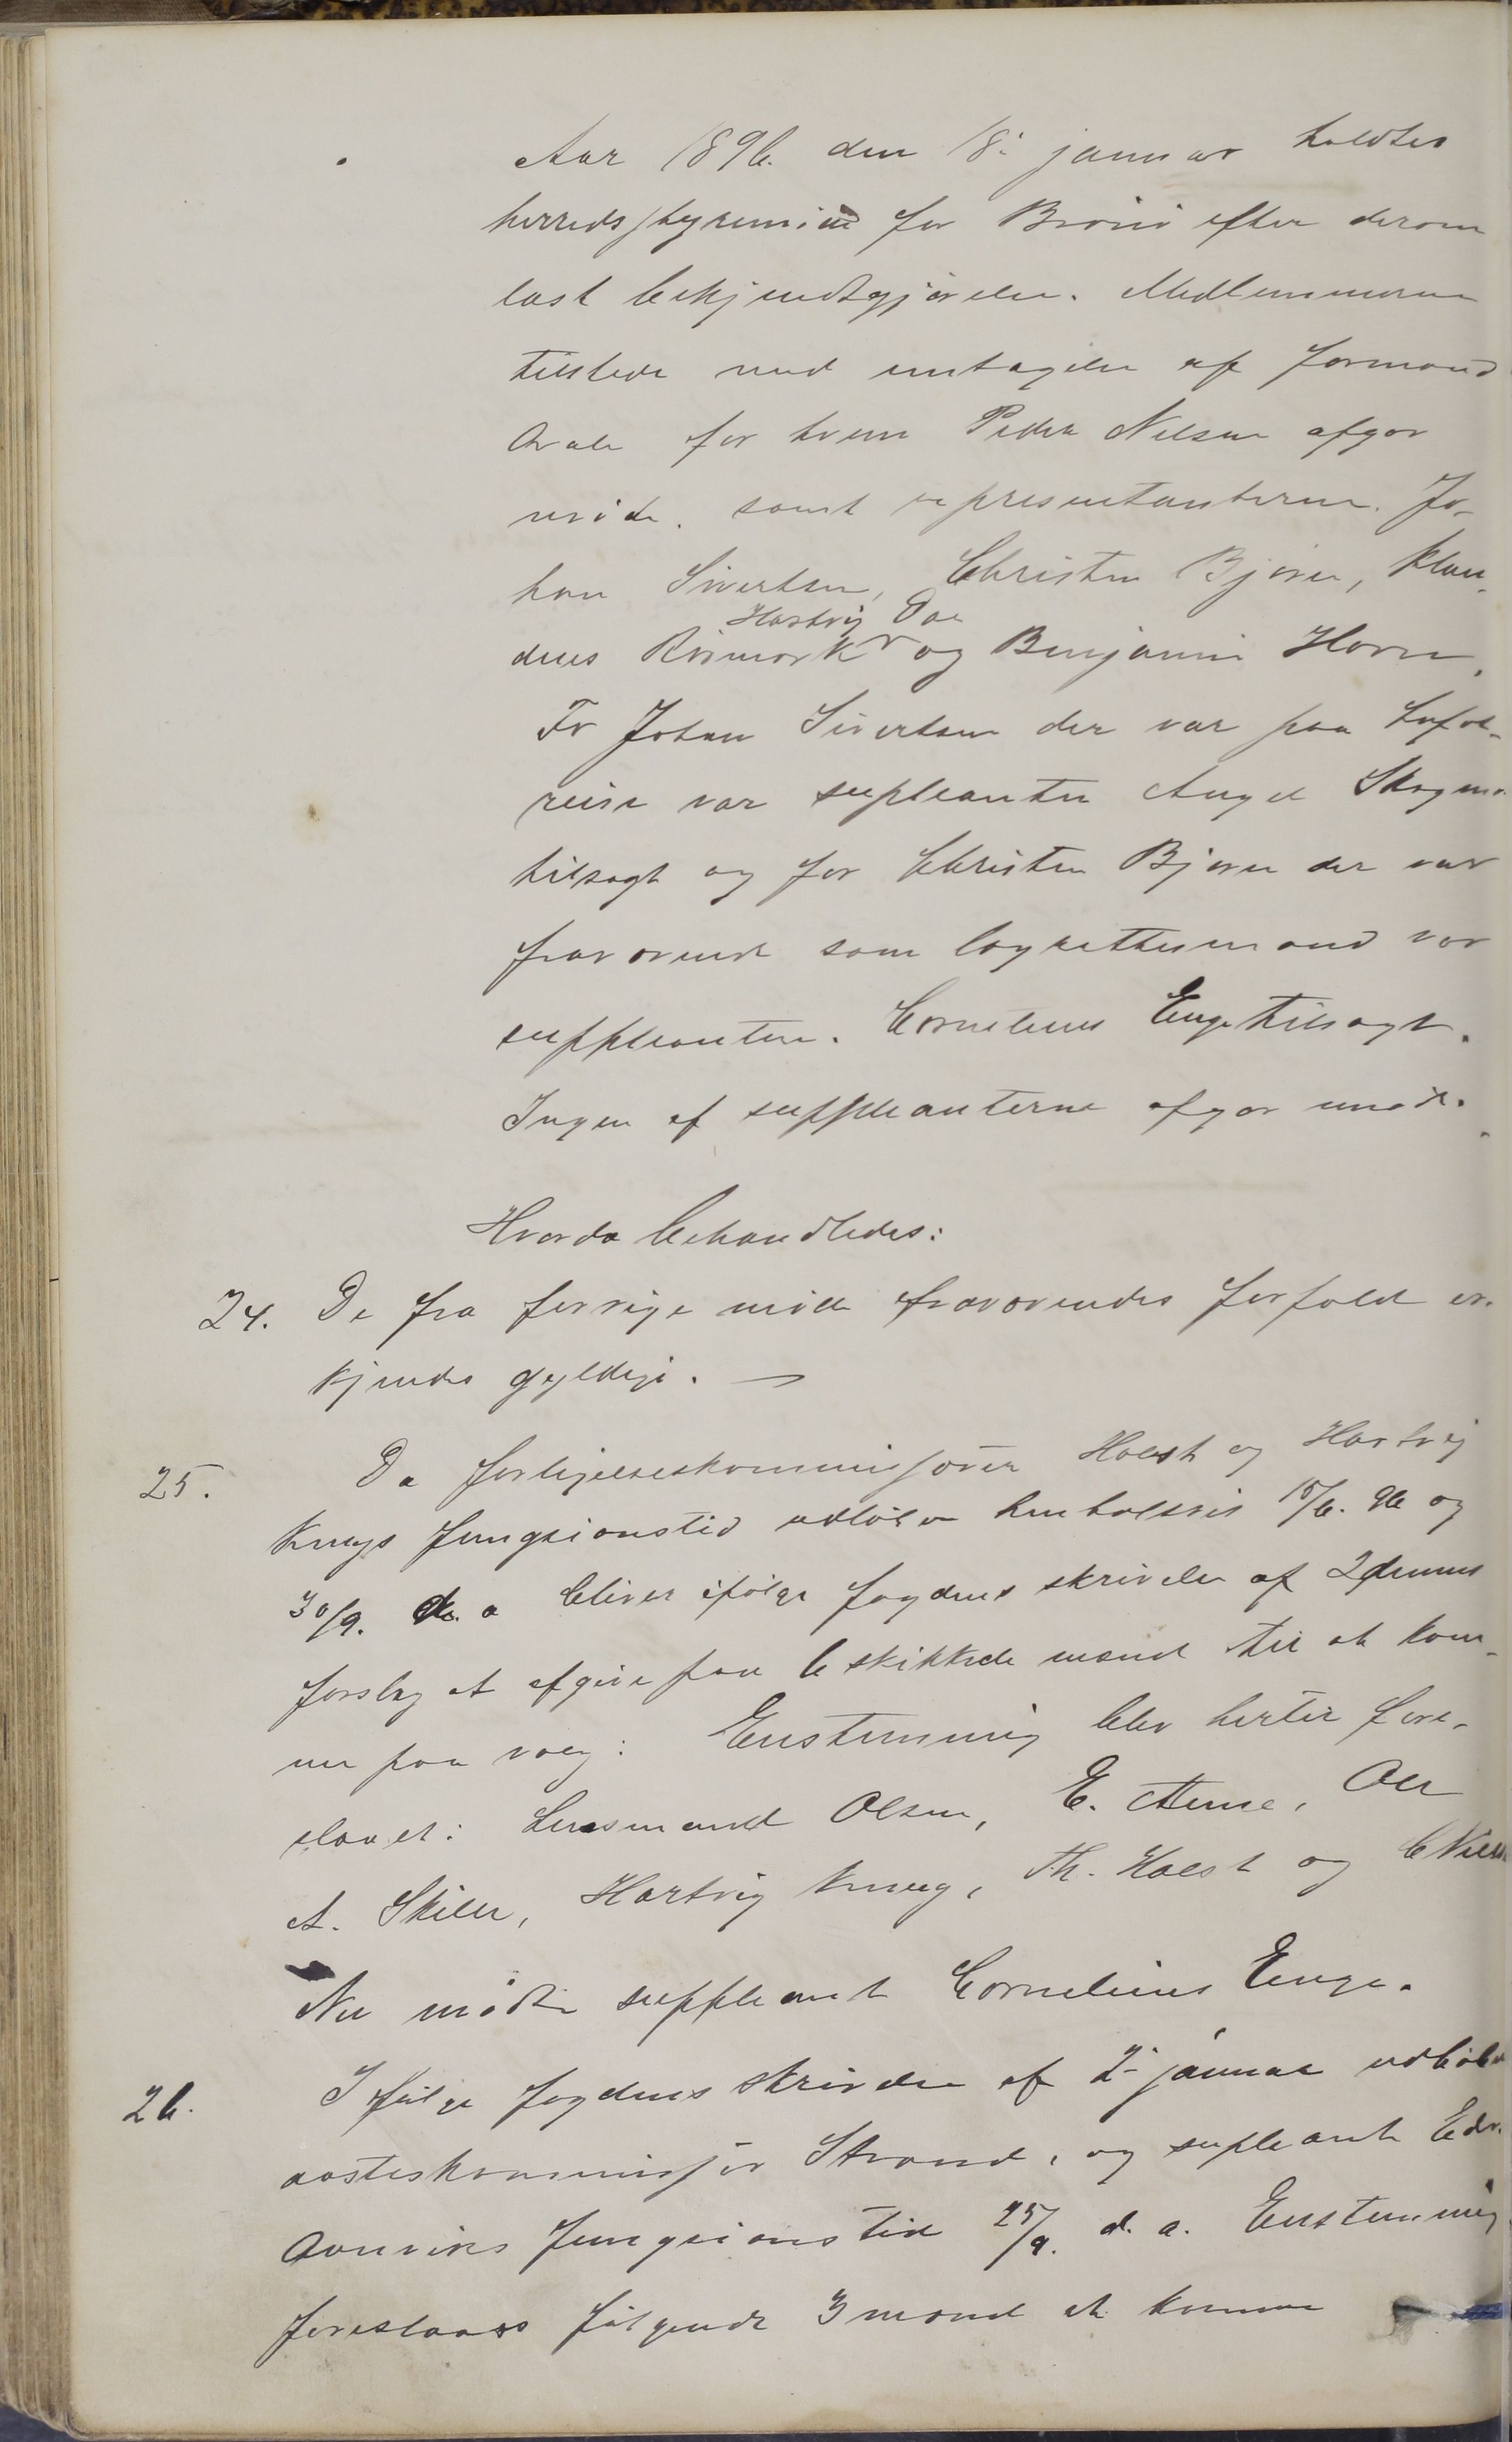 Aar 1896. den 18: januar holdtes
herredsstyremöde for Brönö efter derom
læst bekjendtgjörelse. Medlemmerne
tilstede med undtagelse af formand
Qvale for hvem Peder Nilsen afgav
möde. samt representanterne. Jo-
han Sivertsen, Christen Bjøren, Klau-
Hartvig Dae
dius Rismork og Benjamin Horn.
Fo Johan Sivertsen der var paa Lofot-
reise var supleanten August
tilsagt og for Christen Bjøren der var
fraværende som lagrettemand var
suppleanten. Cornelius Enge tilsagt.
Ingen af suppleanterne afgav möde.
Hvorda behandledes:
24. De fra forrige möde fraværendes forfald er-
kjendes gyldige. —
25. Da forligelseskommissörer Holst og Hartvig
Krugs fungsionstid udlöber henholdsvis 15/6. 96 og
30/9. d. a bliver ifölge fogdens skrivelse af 2 dennes
forslag at afgive paa 6 skikkede mænd til at kom-
me paa valg: Enstemmig blev hertil fore-
slaaet: Lensmand Olsen, E. Aune, Ole
A. Skille, Hartvig Krug, Th. Holst og
Nu mödte suppleant Cornelius Enge.
26. I fölge fogdens skrivelse af 2 januar udlöber
aastedskommissör Strand, og supleant Edv.
Aunviks fungsionstid 25/9. d. a. Enstemmig
foreslaaes fölgende 3 mænd at komme